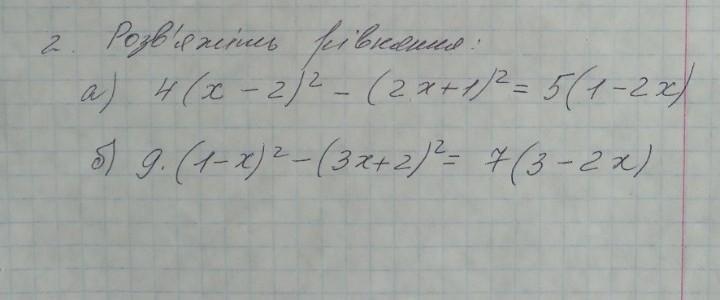 2. Розв'яжіть рівняння:
а) 4(x-2)² - (2x+1)² = 5(1-2x)
б) 9·(1-x)² - (3x+2)² = 7(3-2x)